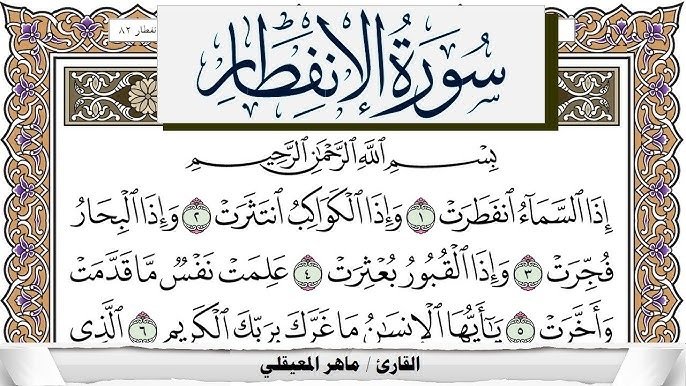 نفطار ٨٢
سُورَةُ الإِنفِطَارِ
بِسْمِ اللَّهِ الرَّحْمَٰنِ الرَّحِيمِ
إِذَا السَّمَاءُ انفَطَرَتْ ١ وَإِذَا الْكَوَاكِبُ انتَثَرَتْ ٢ وَإِذَا الْبِحَارُ
فُجِّرَتْ ٣ وَإِذَا الْقُبُورُ بُعْثِرَتْ ٤ عَلِمَتْ نَفْسٌ مَّا قَدَّمَتْ
وَأَخَّرَتْ ٥ يَا أَيُّهَا الْإِنسَانُ مَا غَرَّكَ بِرَبِّكَ الْكَرِيمِ ٦ الَّذِي
القارئ / ماهر المعيقلي